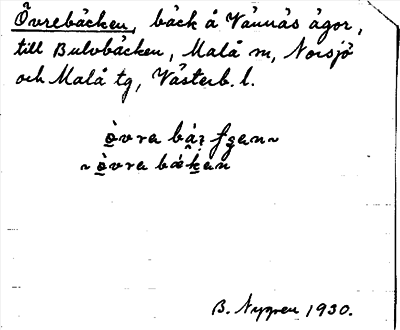 Övrebäcken, bäck å Vännäs ägor,
till Bulvbäcken, Malå m, Norsjö
och Malå tg, Västerb. l.
òvra
~ òvra
B. Nygren 1930.